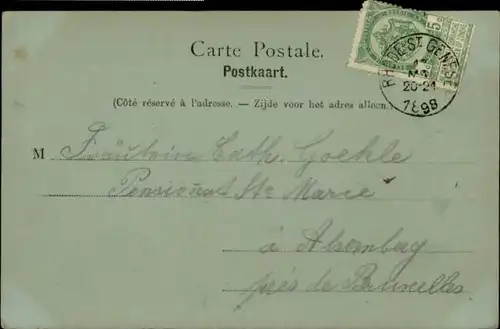 Carte Postale.
Postkaart.
(Côté réservé à l'adresse. — Zijde voor het adres alleen.)
RHODE-ST-GENÈSE
20-21
1898
5
M Fräulein Cath. Goehle
Pensionat Ste Marie
à Alsemberg
près de Bruxelles